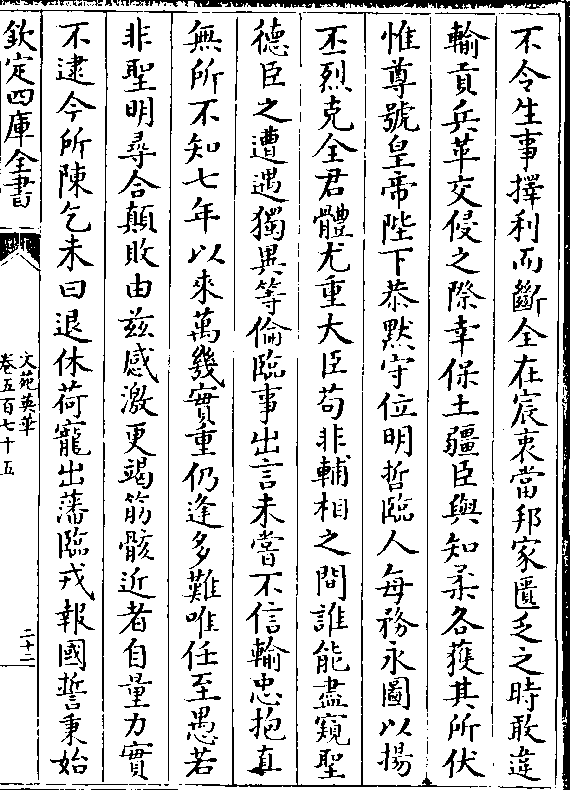 不令生事擇利而斷全在宸衷當邦家匱乏之時敢違
輸貢兵革交侵之際幸保土疆臣與知柔各獲其所伏
惟尊號皇帝陛下恭默守位明哲臨人每務永圖以揚
丕烈克全君體尤重大臣苟非輔相之間誰能盡窺聖
德臣之遭遇獨異等倫臨事出言未嘗不信輸忠抱直
無所不知七年以來萬幾實重仍逢多難唯任至愚若
非聖明尋合顛敗由兹感激更竭筋骸近者自量力實
不逮今所陳乞未曰退休荷寵出藩臨戎報國誓秉始
欽定四庫全書
文苑英華
卷五百七十五
二十二